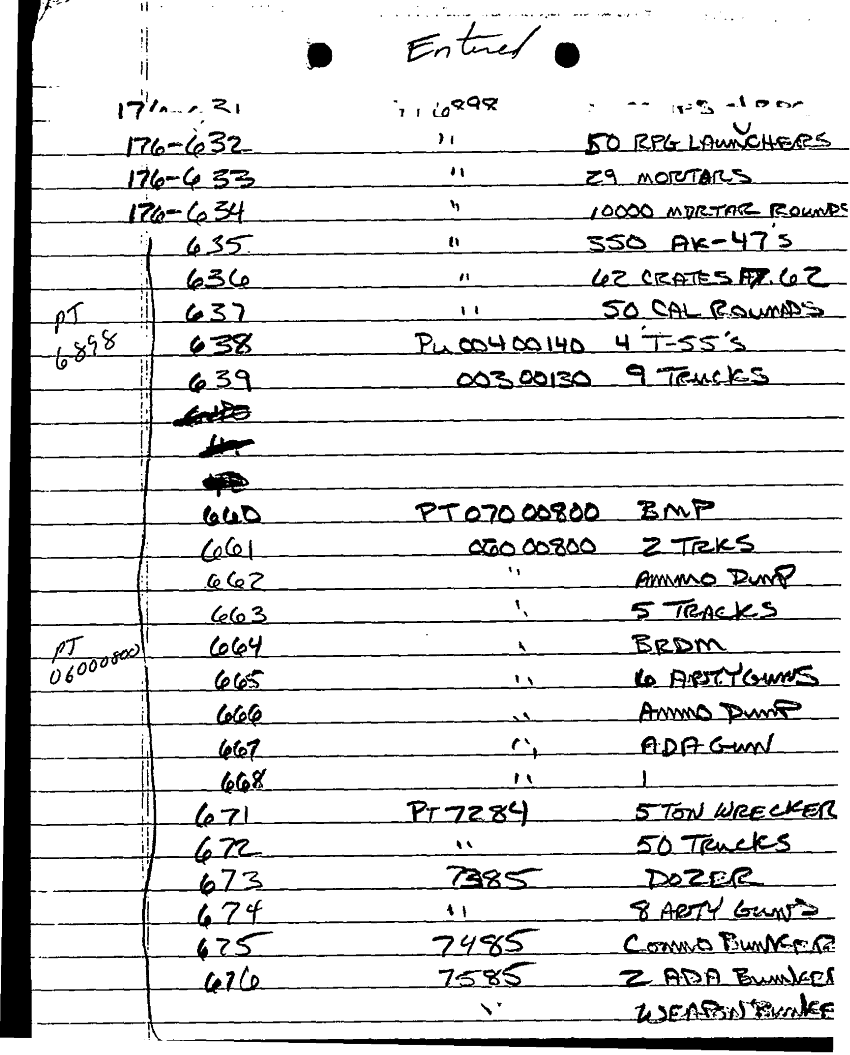 Entered
176-632 " 50 RPG LAUNCHERS
176-633 " 29 MORTARS
176-634 " 10000 MORTAR ROUNDS
635 " 350 AK-47's
636 " 62 CRATES 7.62
637 " 50 CAL ROUNDS
PT
6898
638 PU 00400140 4 T-55's
639 00300130 9 TRUCKS
660 PT 07000800 BMP
661 06000800 2 TRKS
662 " AMMO DUMP
663 " 5 TRACKS
PT
06000800
664 " BRDM
665 " 6 ARTY GUNS
666 " AMMO DUMP
667 " ADA GUN
668 " 1
671 PT 7284 5 TON WRECKER
672 " 50 TRUCKS
673 7385 DOZER
674 " 8 ARTY GUN'S
675 7485 COMMO BUNKER
676 7585 2 ADA BUNKER
" WEAPON BUNKE